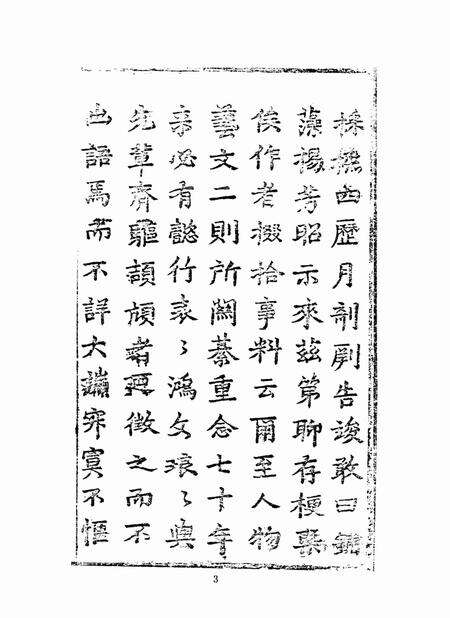 採摭四歷月剞劂告竣敢曰鋪
藻揚芳昭示來茲第聊存梗槩
俟作者掇拾事料云爾至人物
藝文二則所闕綦重念七十年
來必有懿行表〻鴻文琅〻與
先軰齊驅頡頏者徵之而不
出語焉而不詳大寞不
3